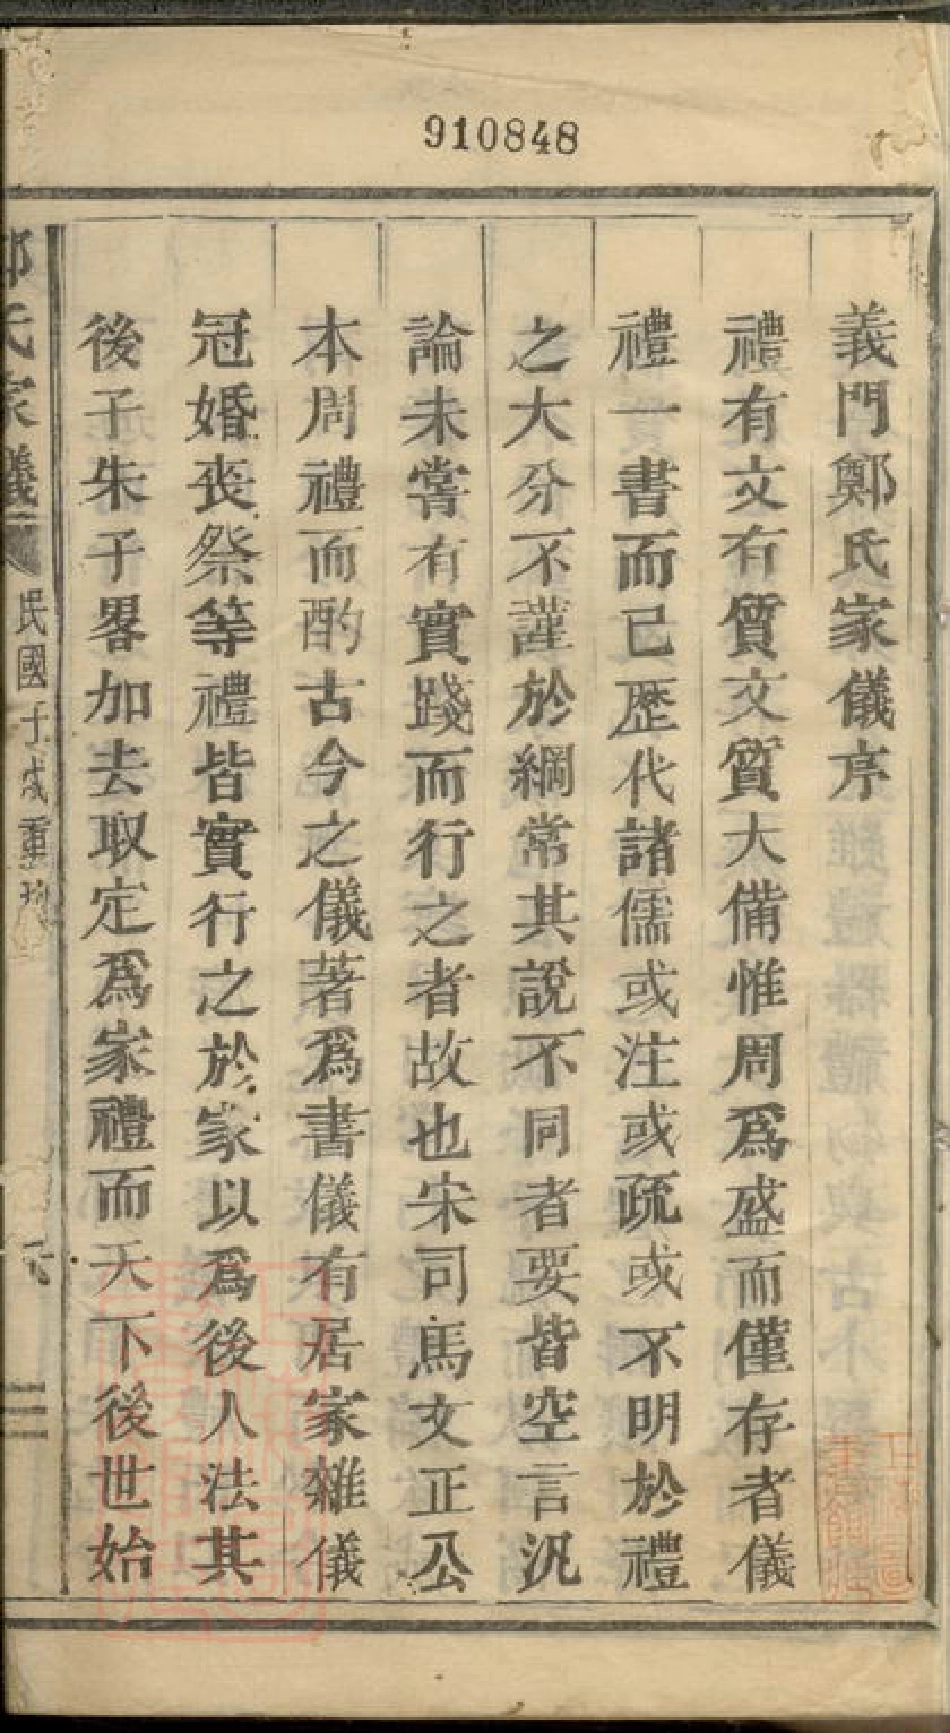 910848
義門鄭氏家儀序
禮有文有質文質大備惟周爲盛而僅存者儀
禮一書而已歷代諸儒或注或疏或不明於禮
之大分不謹於綱常其說不同者要皆空言汎
論未嘗有實踐而行之者故也宋司馬文正公
本周禮而酌古今之儀著爲書儀有居家雜儀
冠婚喪祭等禮皆實行之於家以爲後人法其
後子朱子畧加去取定爲家禮而天下後世始
鄭氏家儀 民國 戊重